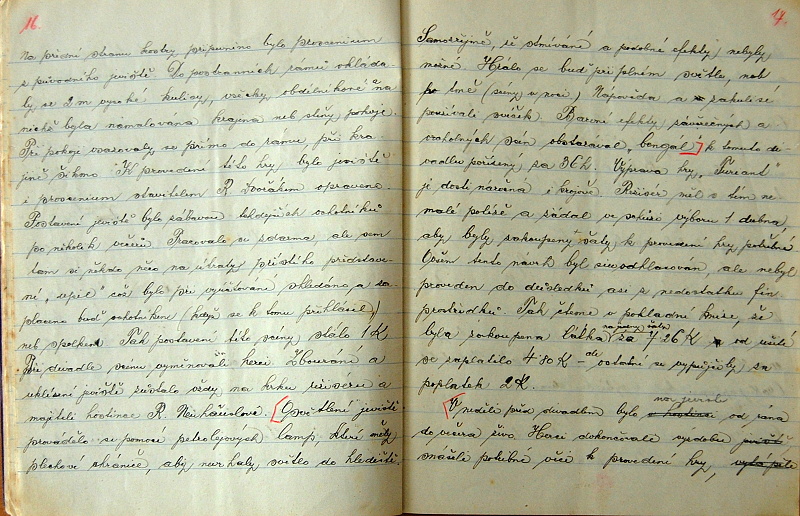 16.
na přední stranu kostry připevněno bylo proscenium
z původního jeviště. Do postranních rámů vkláda-
ly se 2 m vysoké kulisy, všecky obdélníkové na
nichž byla namalována krajina neb stěny pokoje.
Při pokoje vsazovaly se přímo do rámu, při kra-
jině šikmo. K provedení této hry, bylo jeviště
i proscenium stavitelem R. Dvořákem opraveno.
Postavení jeviště bylo zábavou tehdejších ochotníků
po několik večerů. Pracovalo se zdarma, ale sem
tam si někdo něco na útraty příštího představe-
ní „ " což bylo při vyúčtování shledáno a za-
placeno buď ochotníkem (když se k tomu přihlásil)
neb spolkem. Tak postavení této scény stálo 1 K
Při divadle scénu vyměňovali herci. Zbourání a
uklízení jeviště zůstalo vždy na krku režiséra a
majiteli hostince R. Neuhäuslové. Osvětlení jeviště
provádělo se pomocí petrolejových lamp, které měly
plechové chrániče, aby nevrhaly světlo do hlediště.
17.
Samozřejmě, že stmívání a podobné efekty nebyly
možné. Hrálo se buď při plném světle, neb
po tmě (scény v noci) Nápověda a zákulisí
používali svíček. Barevné efekty závěrečných a
vrcholných scén obstarával „bengal" k tomuto di-
vadlu pořízený za 3 K h. Výprava hry „Furiant"
je dosti náročná i krojově. Režisér měl s tím ne-
malé potíže a žádal ve schůzi výboru 1 dubna,
aby byly zakoupeny šáty k provedení hry potřebné
Ovšem tento návrh byl sice odhlasován, ale nebyl
proveden do důsledků asi z nedostatku fin.
prostředků. Tak čteme v pokladní knize, že
byla zakoupena látka na jedny šaty za 7˙26 K od ušití
se zaplatilo 4˙80 K – ale ostatní se vypůjčily za
poplatek 2 K.
V neděli před divadlem bylo na jevišti od rána
do večera živo. Herci dokonávali výrobu
snášeli potřebné věci k provedení hry,